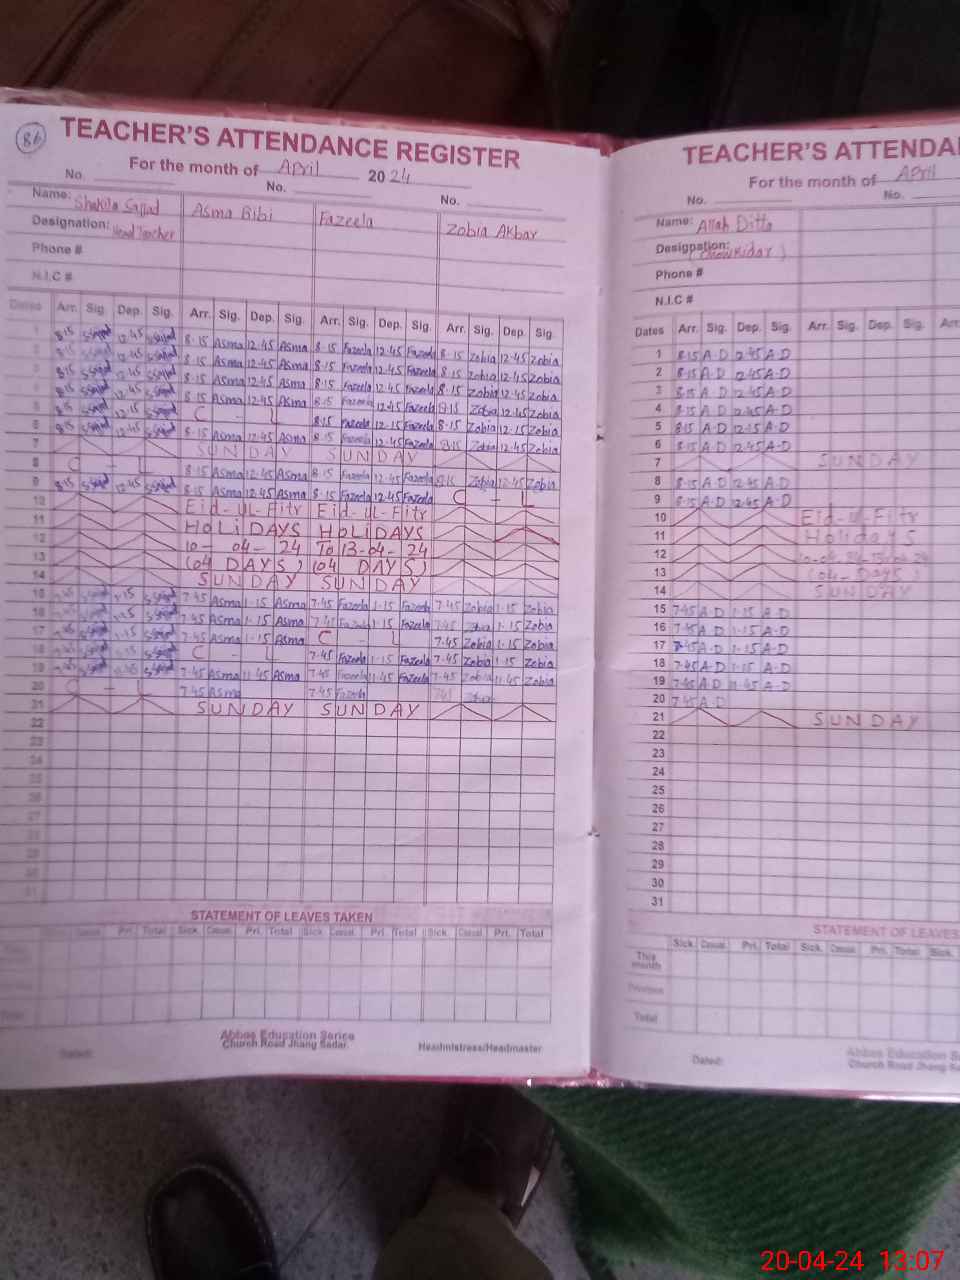 86
TEACHER'S ATTENDANCE REGISTER
For the month of April 2024
No. No. No.
Name: Shakila Sajjad Asma Bibi Fazeela Zobia Akbar
Designation: Head Teacher
Phone #
N.I.C #
Dates Arr. Sig. Dep. Sig. Arr. Sig. Dep. Sig. Arr. Sig. Dep. Sig. Arr. Sig. Dep. Sig.
1 8·15 12·45 8·15 Asma 12·45 Asma 8·15 Fazeela 12·45 Fazeela 8·15 Zobia 12·45 Zobia
2 8·15 12·45 8·15 Asma 12·45 Asma 8·15 Fazeela 12·45 Fazeela 8·15 Zobia 12·45 Zobia
3 8·15 12·45 8·15 Asma 12·45 Asma 8·15 Fazeela 12·45 Fazeela 8·15 Zobia 12·45 Zobia
4 8·15 12·45 8·15 Asma 12·45 Asma 8·15 Fazeela 12·45 Fazeela 8·15 Zobia 12·45 Zobia
5 8·15 12·15 C - L 8·15 Fazeela 12·15 Fazeela 8·15 Zobia 12·15 Zobia
6 8·15 12·45 8·15 Asma 12·45 Asma 8·15 Fazeela 12·45 Fazeela 8·15 Zobia 12·45 Zobia
7 SUNDAY SUNDAY
8 C - L 8·15 Asma 12·45 Asma 8·15 Fazeela 12·45 Fazeela 8·15 Zobia 12·45 Zobia
9 8·15 12·45 8·15 Asma 12·45 Asma 8·15 Fazeela 12·45 Fazeela C - L
10 Eid-Ul-Fitr Eid-Ul-Fitr
11 HOLiDAYS HOLiDAYS
12 10- 04- 24 To 13-04-24
13 (04 DAYS) (04 DAYS)
14 SUNDAY SUNDAY
15 7·45 Asma 1·15 Asma 7·45 Fazeela 1·15 Fazeela 7·45 Zobia 1·15 Zobia
16 7·45 Asma 1·15 Asma 7·45 Fazeela 1·15 Fazeela 7·45 Zobia 1·15 Zobia
17 1·15 7·45 Asma 1·15 Asma C - L 7·45 Zobia 1·15 Zobia
18 C - L 7·45 Fazeela 1·15 Fazeela 7·45 Zobia 1·15 Zobia
19 7·45 Asma 11·45 Asma 7·45 Fazeela 11·45 Fazeela 7·45 Zobia 11·45 Zobia
20 C - L 7·45 Asma 7·45 Fazeela 7·45 Zobia
21 SUNDAY SUNDAY
22
23
24
25
26
27
28
29
30
31
STATEMENT OF LEAVES TAKEN
Pri. Total Sick. Casual. Pri. Total Sick. Casual. Pri. Total Sick. Casual. Pri. Total
Dated: Abbas Education Serice Headmistress/Headmaster
Church Road Jhang Sadar.
TEACHER'S ATTENDA
For the month of April
No. No.
Name: Allah Ditta
Designation: (Chowkidar)
Phone #
N.I.C #
Dates Arr. Sig. Dep. Sig. Arr. Sig. Dep. Sig. Arr.
1 8·15 A-D 12·45 A-D
2 8·15 A-D 12·45 A-D
3 8·15 A-D 12·45 A-D
4 8·15 A-D 12·45 A-D
5 8·15 A-D 12·15 A-D
6 8·15 A-D 12·45 A-D
7 SUNDAY
8 8·15 A-D 12·45 A-D
9 8·15 A-D 12·45 A-D
10 Eid-Ul-Fitr
11 Holidays
12 10-04-24-13-04-24
13 (04-Days)
14 SUNDAY
15 7·45 A-D 1·15 A-D
16 7·45 A-D 1·15 A-D
17 7·45 A-D 1·15 A-D
18 7·45 A-D 1·15 A-D
19 7·45 A-D 11·45 A-D
20 7·45 A-D
21 SUNDAY
22
23
24
25
26
27
28
29
30
31
STATEMENT OF LEAVES
Sick. Casual. Pri. Total Sick. Casual. Pri. Total Sick.
This month
Previous
Total
Dated: Abbas Education Se
Church Road Jhang Sa
20-04-24 13:07